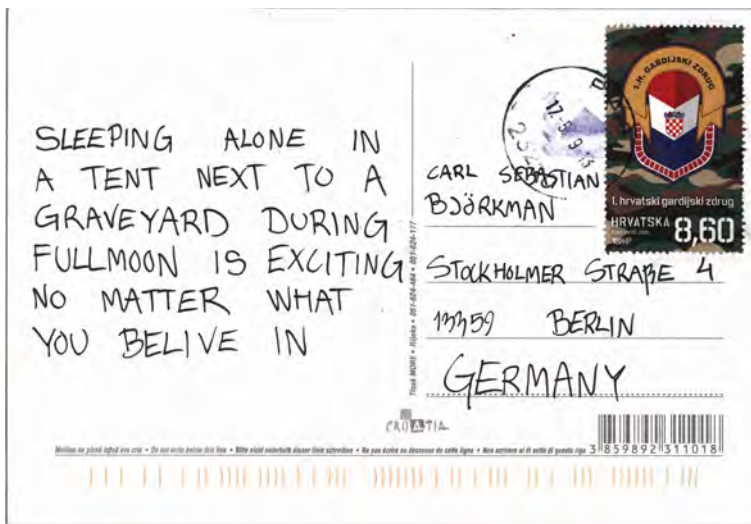 SLEEPING ALONE IN
A TENT NEXT TO A
GRAVEYARD DURING
FULLMOON IS EXCITING
NO MATTER WHAT
YOU BELIVE IN
1.H. GARDIJSKI ZDRUG
1. hrvatski gardijski zdrug
HRVATSKA
8,60
CARL SEBASTIAN
BJÖRKMAN
STOCKHOLMER STRAßE 4
13359 BERLIN
GERMANY
Tisak MORE • Rijeka •
CROATIA
• Do not write below this line • Bitte nicht unterhalb dieser linie schreiben • Ne pas écrire en dessous de cette ligne • Non scrivere al di sotto di questa riga
3 859892 311018